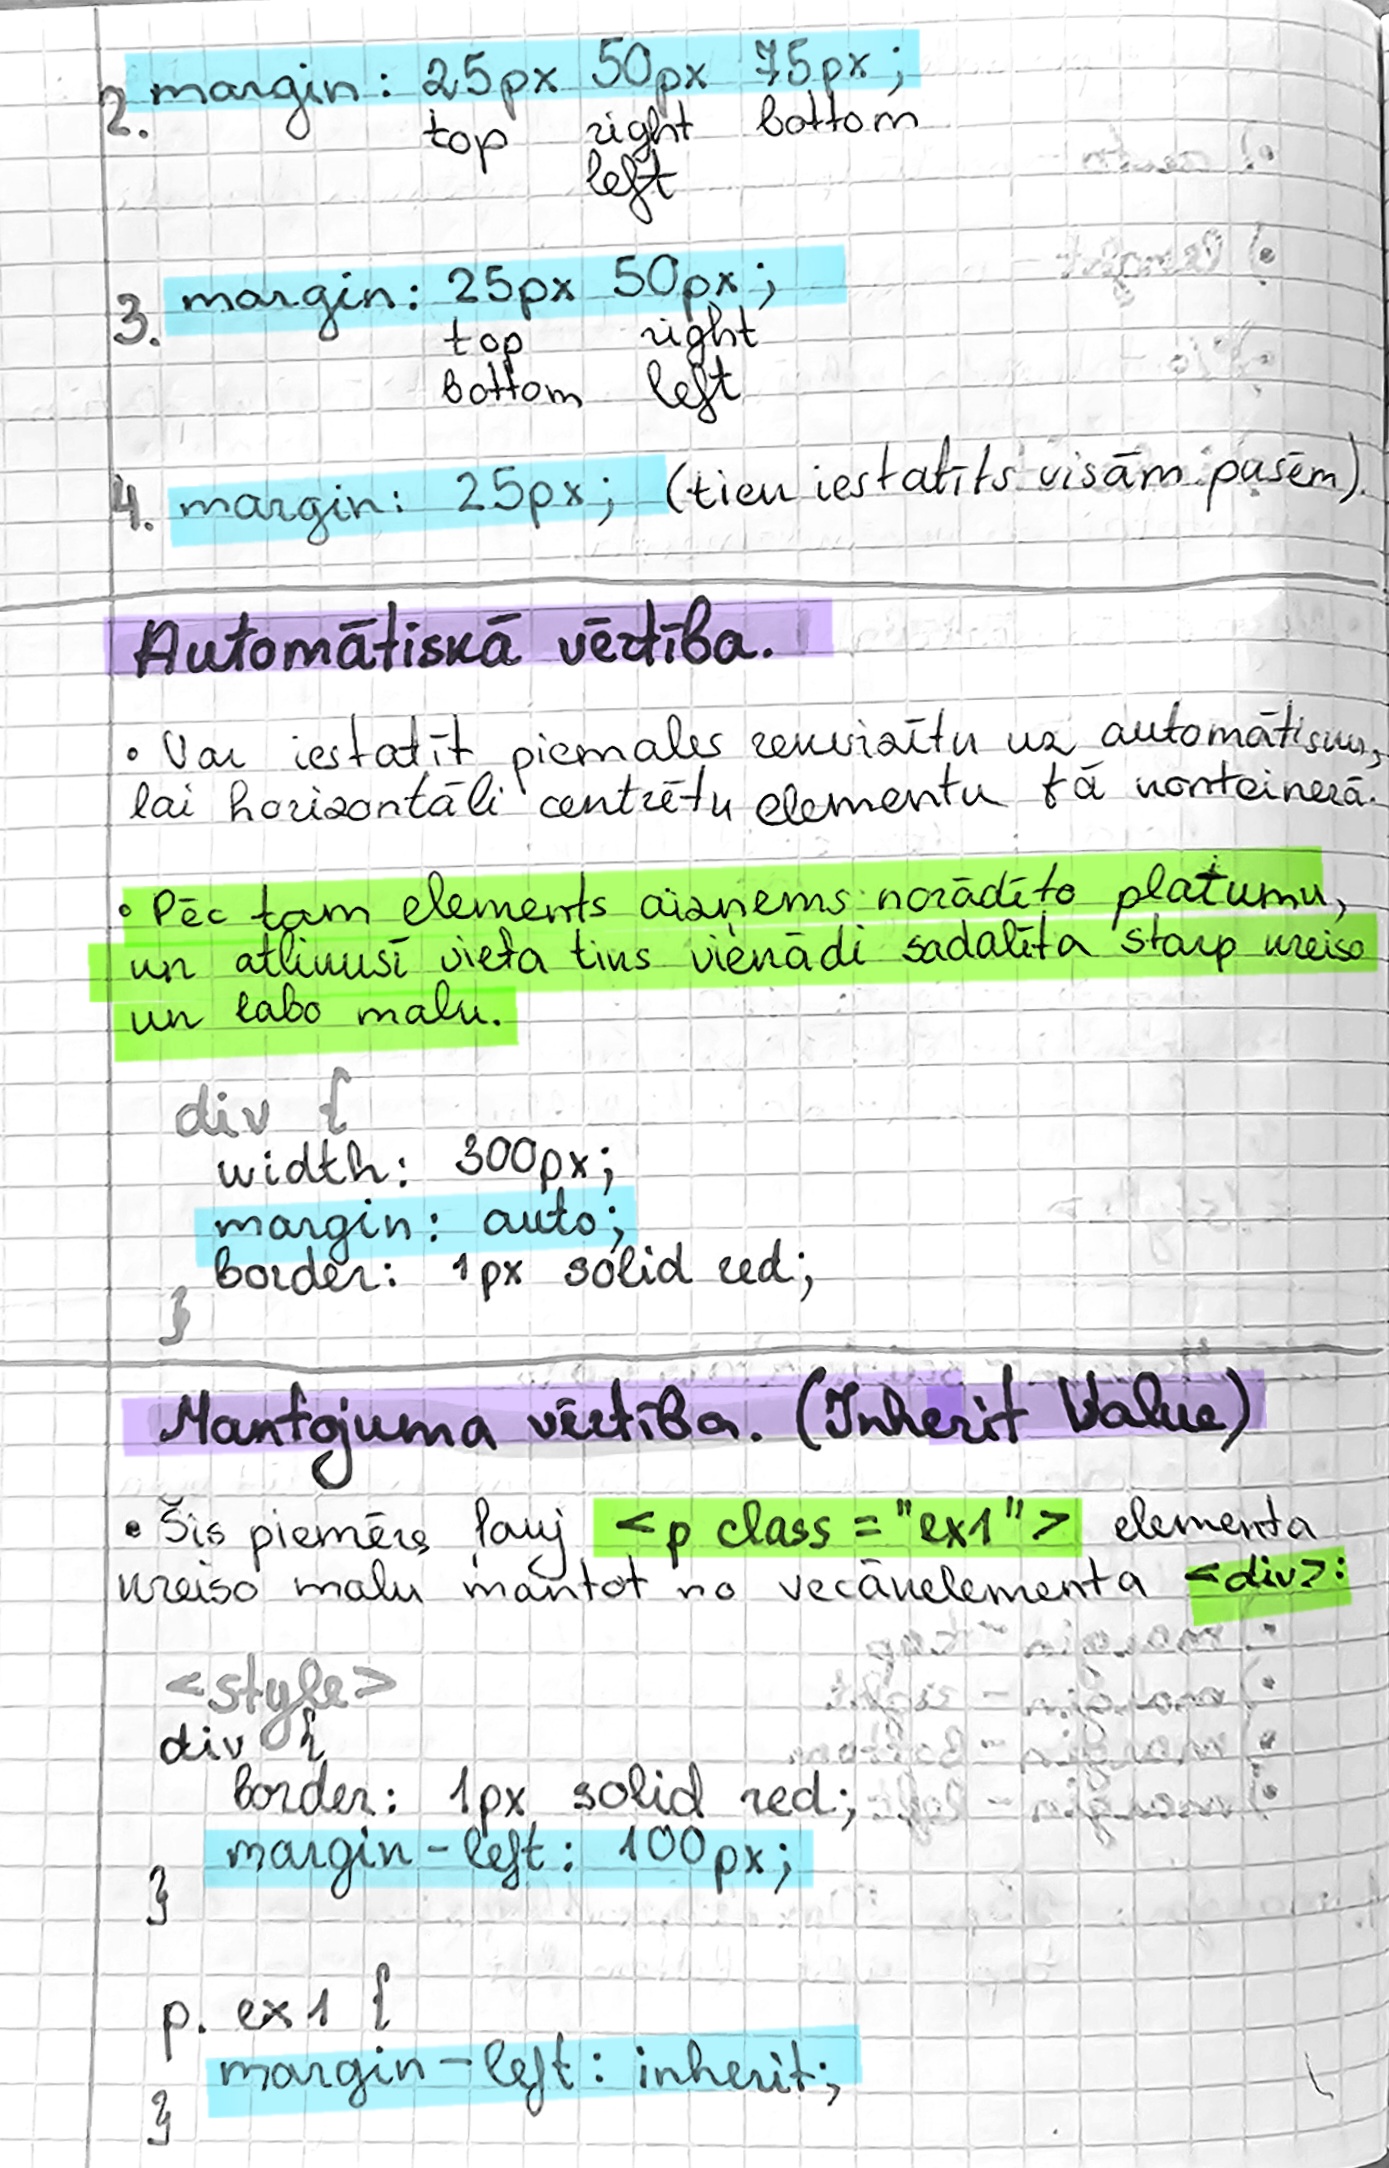 2. margin: 25px 50px 75px;
top right bottom
left
3. margin: 25px 50px;
top right
bottom left
4. margin: 25px; (tiek iestatīts visām pusēm).
Automātiskā vērtība.
• Var iestatīt piemales rekvizītu uz automātisku,
lai horizontāli centrētu elementu tā konteinerā.
• Pēc tam elements aizņems norādīto platumu,
un atlikusī vieta tiks vienādi sadalīta starp kreiso
un labo malu.
div {
width: 300px;
margin: auto;
border: 1px solid red;
}
Mantojuma vērtība. (Inherit Value)
• Šis piemērs ļauj <p class = "ex1"> elementa
kreiso malu mantot no vecākelementa <div>:
<style>
div {
border: 1px solid red;
margin-left: 100px;
}
p. ex1 {
margin-left: inherit;
}